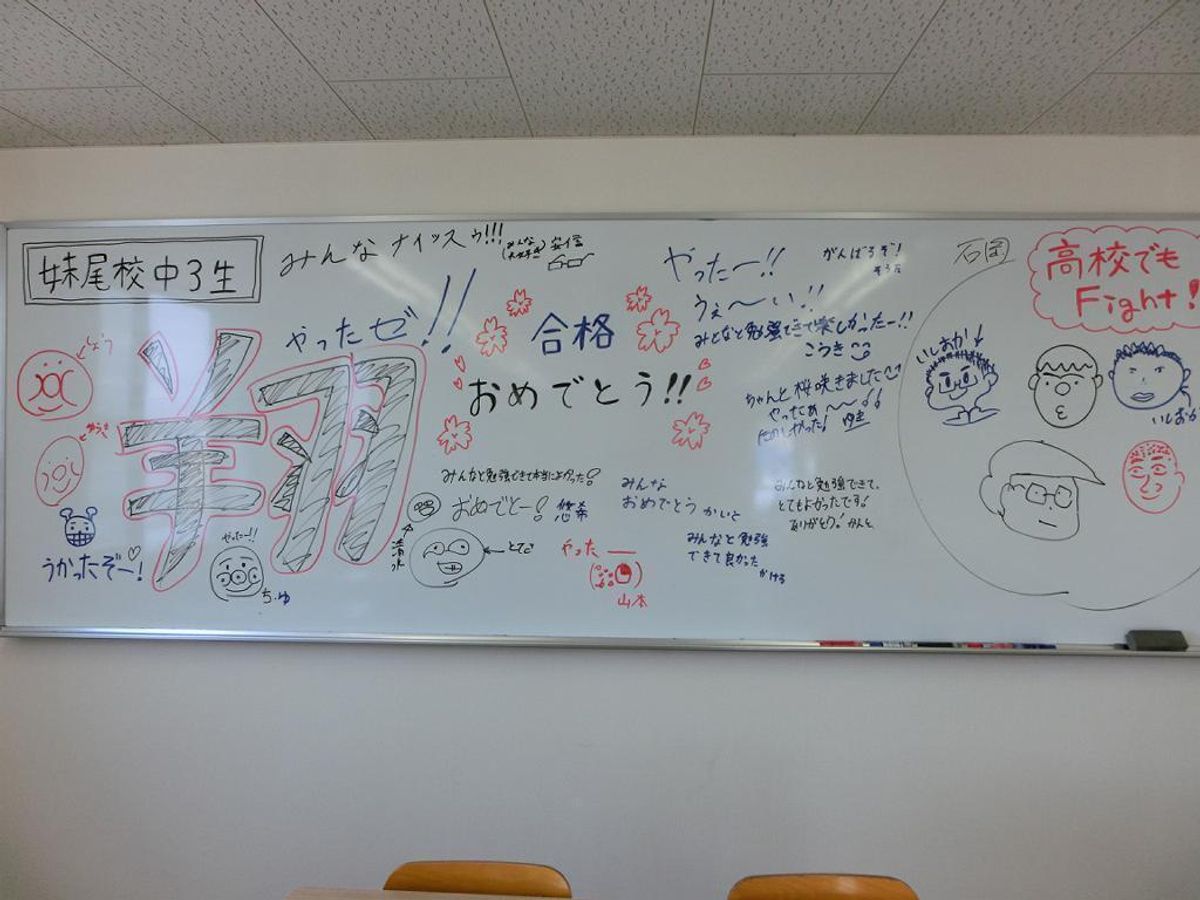 妹尾校中3生
みんなナイッスゥ!!!
安信
やったぜ!!
翔
合格
おめでとう!!
やったー!!
うぇ〜い!!
みんなと勉強できて楽しかったー!!
こうき
がんばろぞ!
ちゃんと桜咲きました
やったぁ〜
たのしかった!
石岡
高校でも
Fight!
いしおか↓
いしおか
うかったぞー!
やったー!!
ち.ゆ
みんなと勉強できて本当によかった!
おめでとー!
悠希
清水
やったー
山本
みんな
おめでとう かいと
みんなと勉強
できて良かった
かける
みんなと勉強できて、
とてもよかったです!
ありがとう!